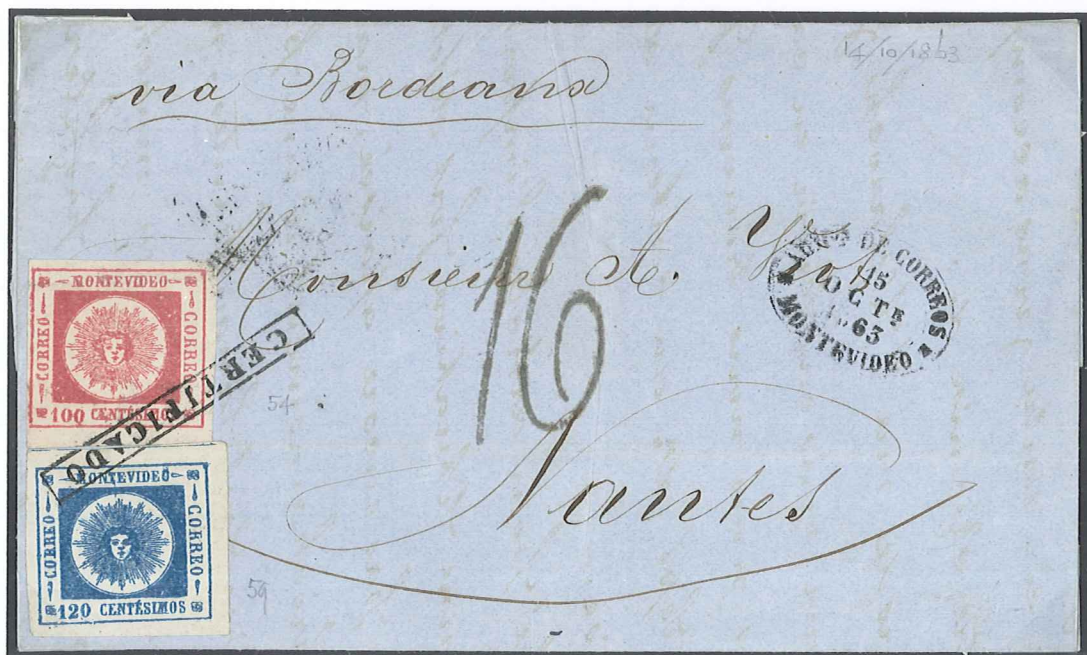 14/10/1863
via Bordeaux
Monsieur A.
16
Nantes
ADMON DE CORREOS
15
OCTE
1863
MONTEVIDEO
MONTEVIDEO
CORREO
CORREO
100 CENTÉSIMOS
CERTIFICADO
54
MONTEVIDEO
CORREO
CORREO
120 CENTÉSIMOS
59